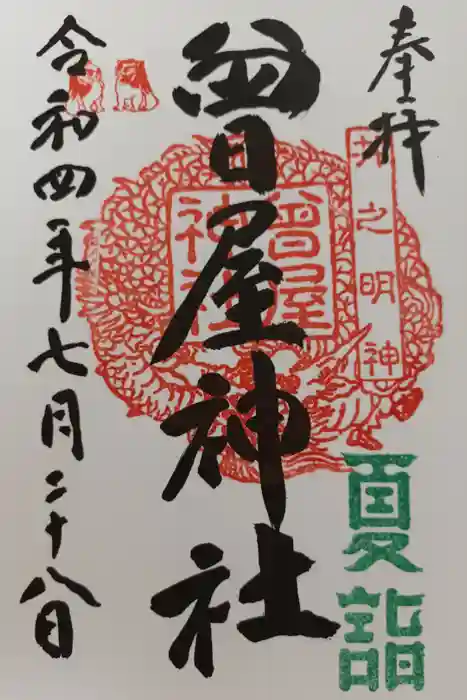 奉拝
井之明神
夏詣
曽屋神社
曽屋
神社
令和四年七月二十八日